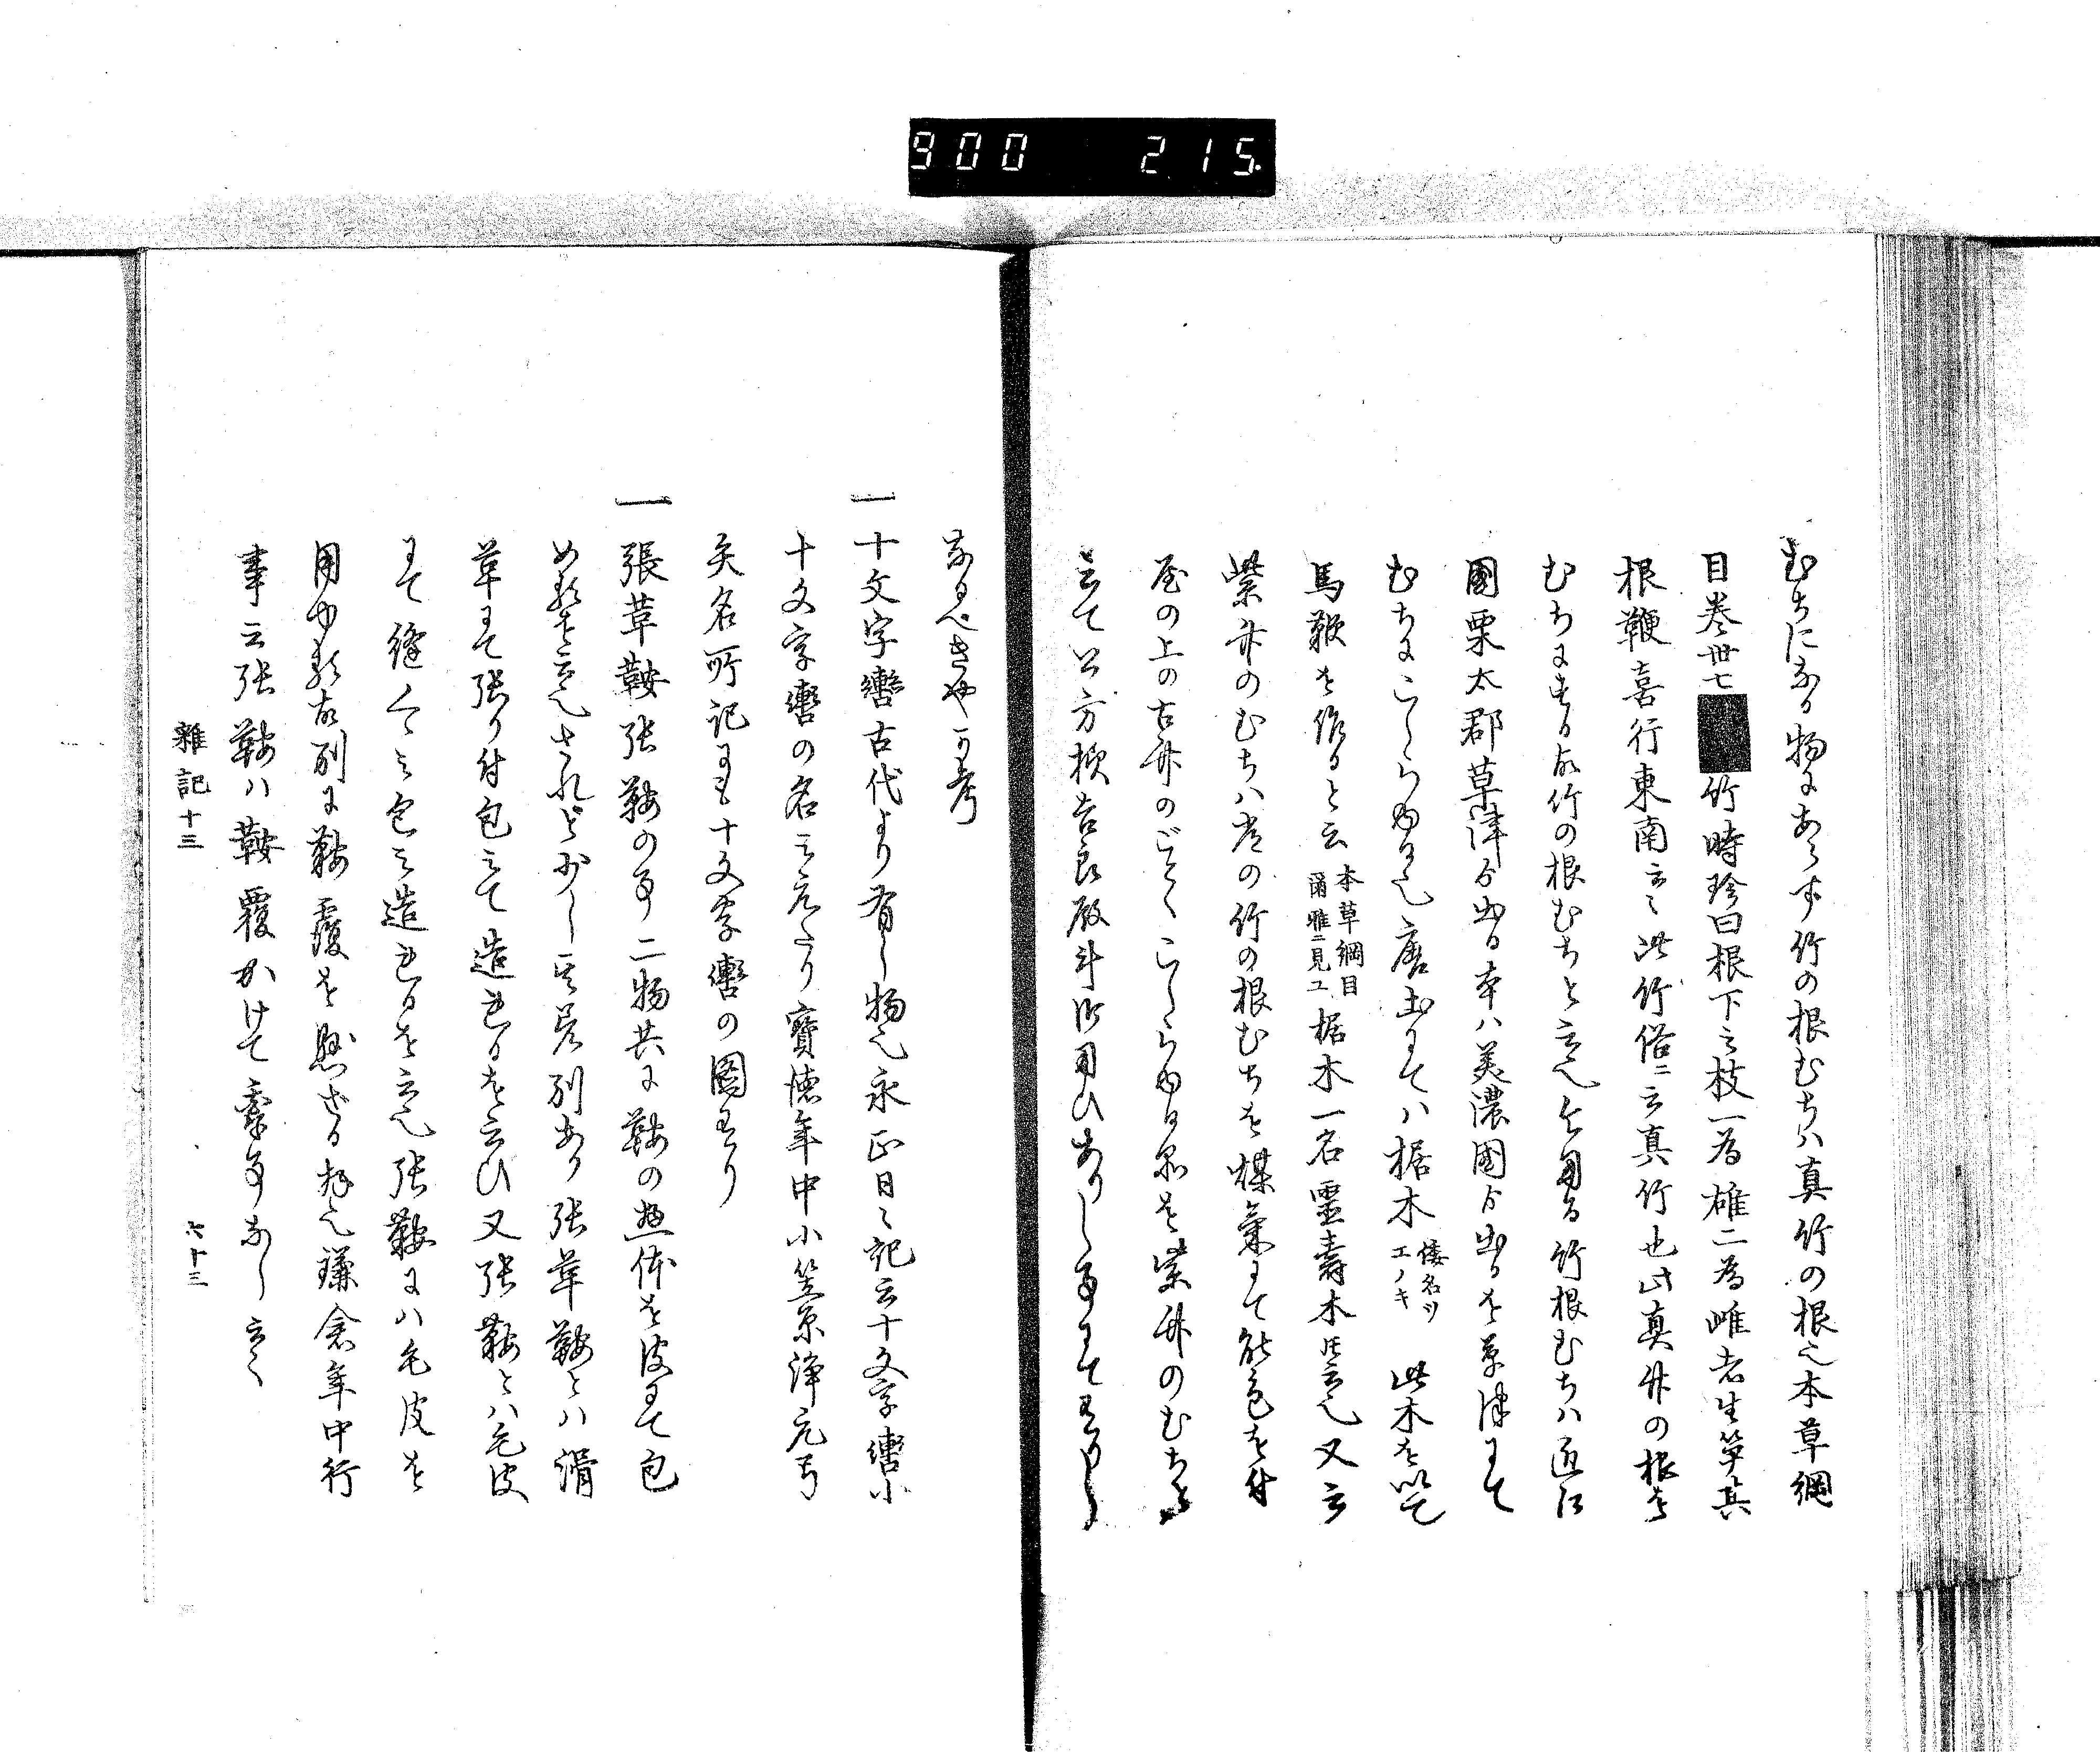 900 215
むちになる物にあらず竹の根むちハ真竹の根也本草綱
目巻卅七竹時珍曰根下之枝一為雄二為雌者生笋其
根鞭喜行東南云々此竹俗ニ云真竹也此真竹の根を
むちにする故竹の根むちと云也今用る竹根むちハ近江
國栗太郡草津ゟ出る本ハ美濃國ゟ出るを草津にて
むちにこしらゆる也唐土にてハ椐木 倭名ツエノキ 此木を以て
馬鞭を作ると云 本草綱目爾雅ニ見ユ 椐木一名靈壽木共云也又云
紫竹のむちハ常の竹の根むちを煤氣にて能色を付
屋の上の古竹のごとくこしらゆる是を紫竹のむちと
云て公方様吉良殿斗御用ひありし事にて
なるべきや可考
一 十文字轡古代より有し物也永正日々記云十文字轡小
十文字轡の名を云たり寳徳年中小笠原浄元弓
矢名所記にも十文字轡の圖あり
一 張革鞍張鞍の事二物共に鞍の惣体を皮にて包
めるを云也されど少し差別あり張革鞍とハ滑
革にて張り付包みて造れるを云ひ又張鞍とハ毛皮
にて縫くゝみ包み造れるを云也張鞍にハ毛皮を
用ゆる故別に鞍覆を懸ざる也鎌倉年中行
事云張鞍ハ鞍覆かけて乗事なし云々
雜記十三
六十三